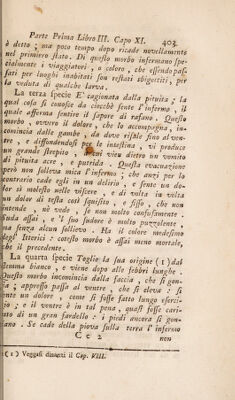 Parte Prima Libro III. Capo XI. 403
è detto; ma poco tempo dopo ricade novellamente
nel primiero stato. Di questo morbo infermano spe-
cialmente i viaggiatori, o coloro, che essendo pas-
sati per luoghi inabitati son restati sbigottiti, per
la veduta di qualche larva.
La terza specie E' cagionata dalla pituita; la
qual cosa si conosce da ciocchè sente l'infermo, il
quale afferma sentire il sapore di rafano. Questo
morbo, ovvero il dolore, che lo accompagna, in-
comincia dalle gambe, da dove risale fino al ve-
tre, e diffondendosi per lo intestina, vi produce
un grande strepito, vien dietro un vomito
di pituita acre, e putrida. Questa evacuazione
però non solleva mica l'infermo; che anzi per lo
contrario cade egli in un delirio, e sente un do-
lor sì molesto nelle viscere, e di volta in volta
un dolor di testa così squisito, e fisso, che non
intende, nè vede, se non molto confusamente.
Suda assai, e'l suo sudore è molto puzzolente;
ma senza alcun sollievo. Ha il colore medesimo
degl' Itterici: cotesto morbo è assai meno mortale,
che il precedente.
La quarta specie Toglie la sua origine (1) dal
flemma bianco, e viene dopo alle febbri lunghe.
Questo morbo incomincia dalla faccia, che si gon-
fia; appresso passa al ventre, che si eleva: si
sente un dolore, come si fosse fatto lungo eserci-
zio; e il ventre è in tal pena, quasi fosse cari-
cato di un gran fardello: i piedi ancora si gon-
fiano. Se cade della piova sulla terra l'infermo
C c 2 non
(1) Veggasi dinanti il Cap. VIII.